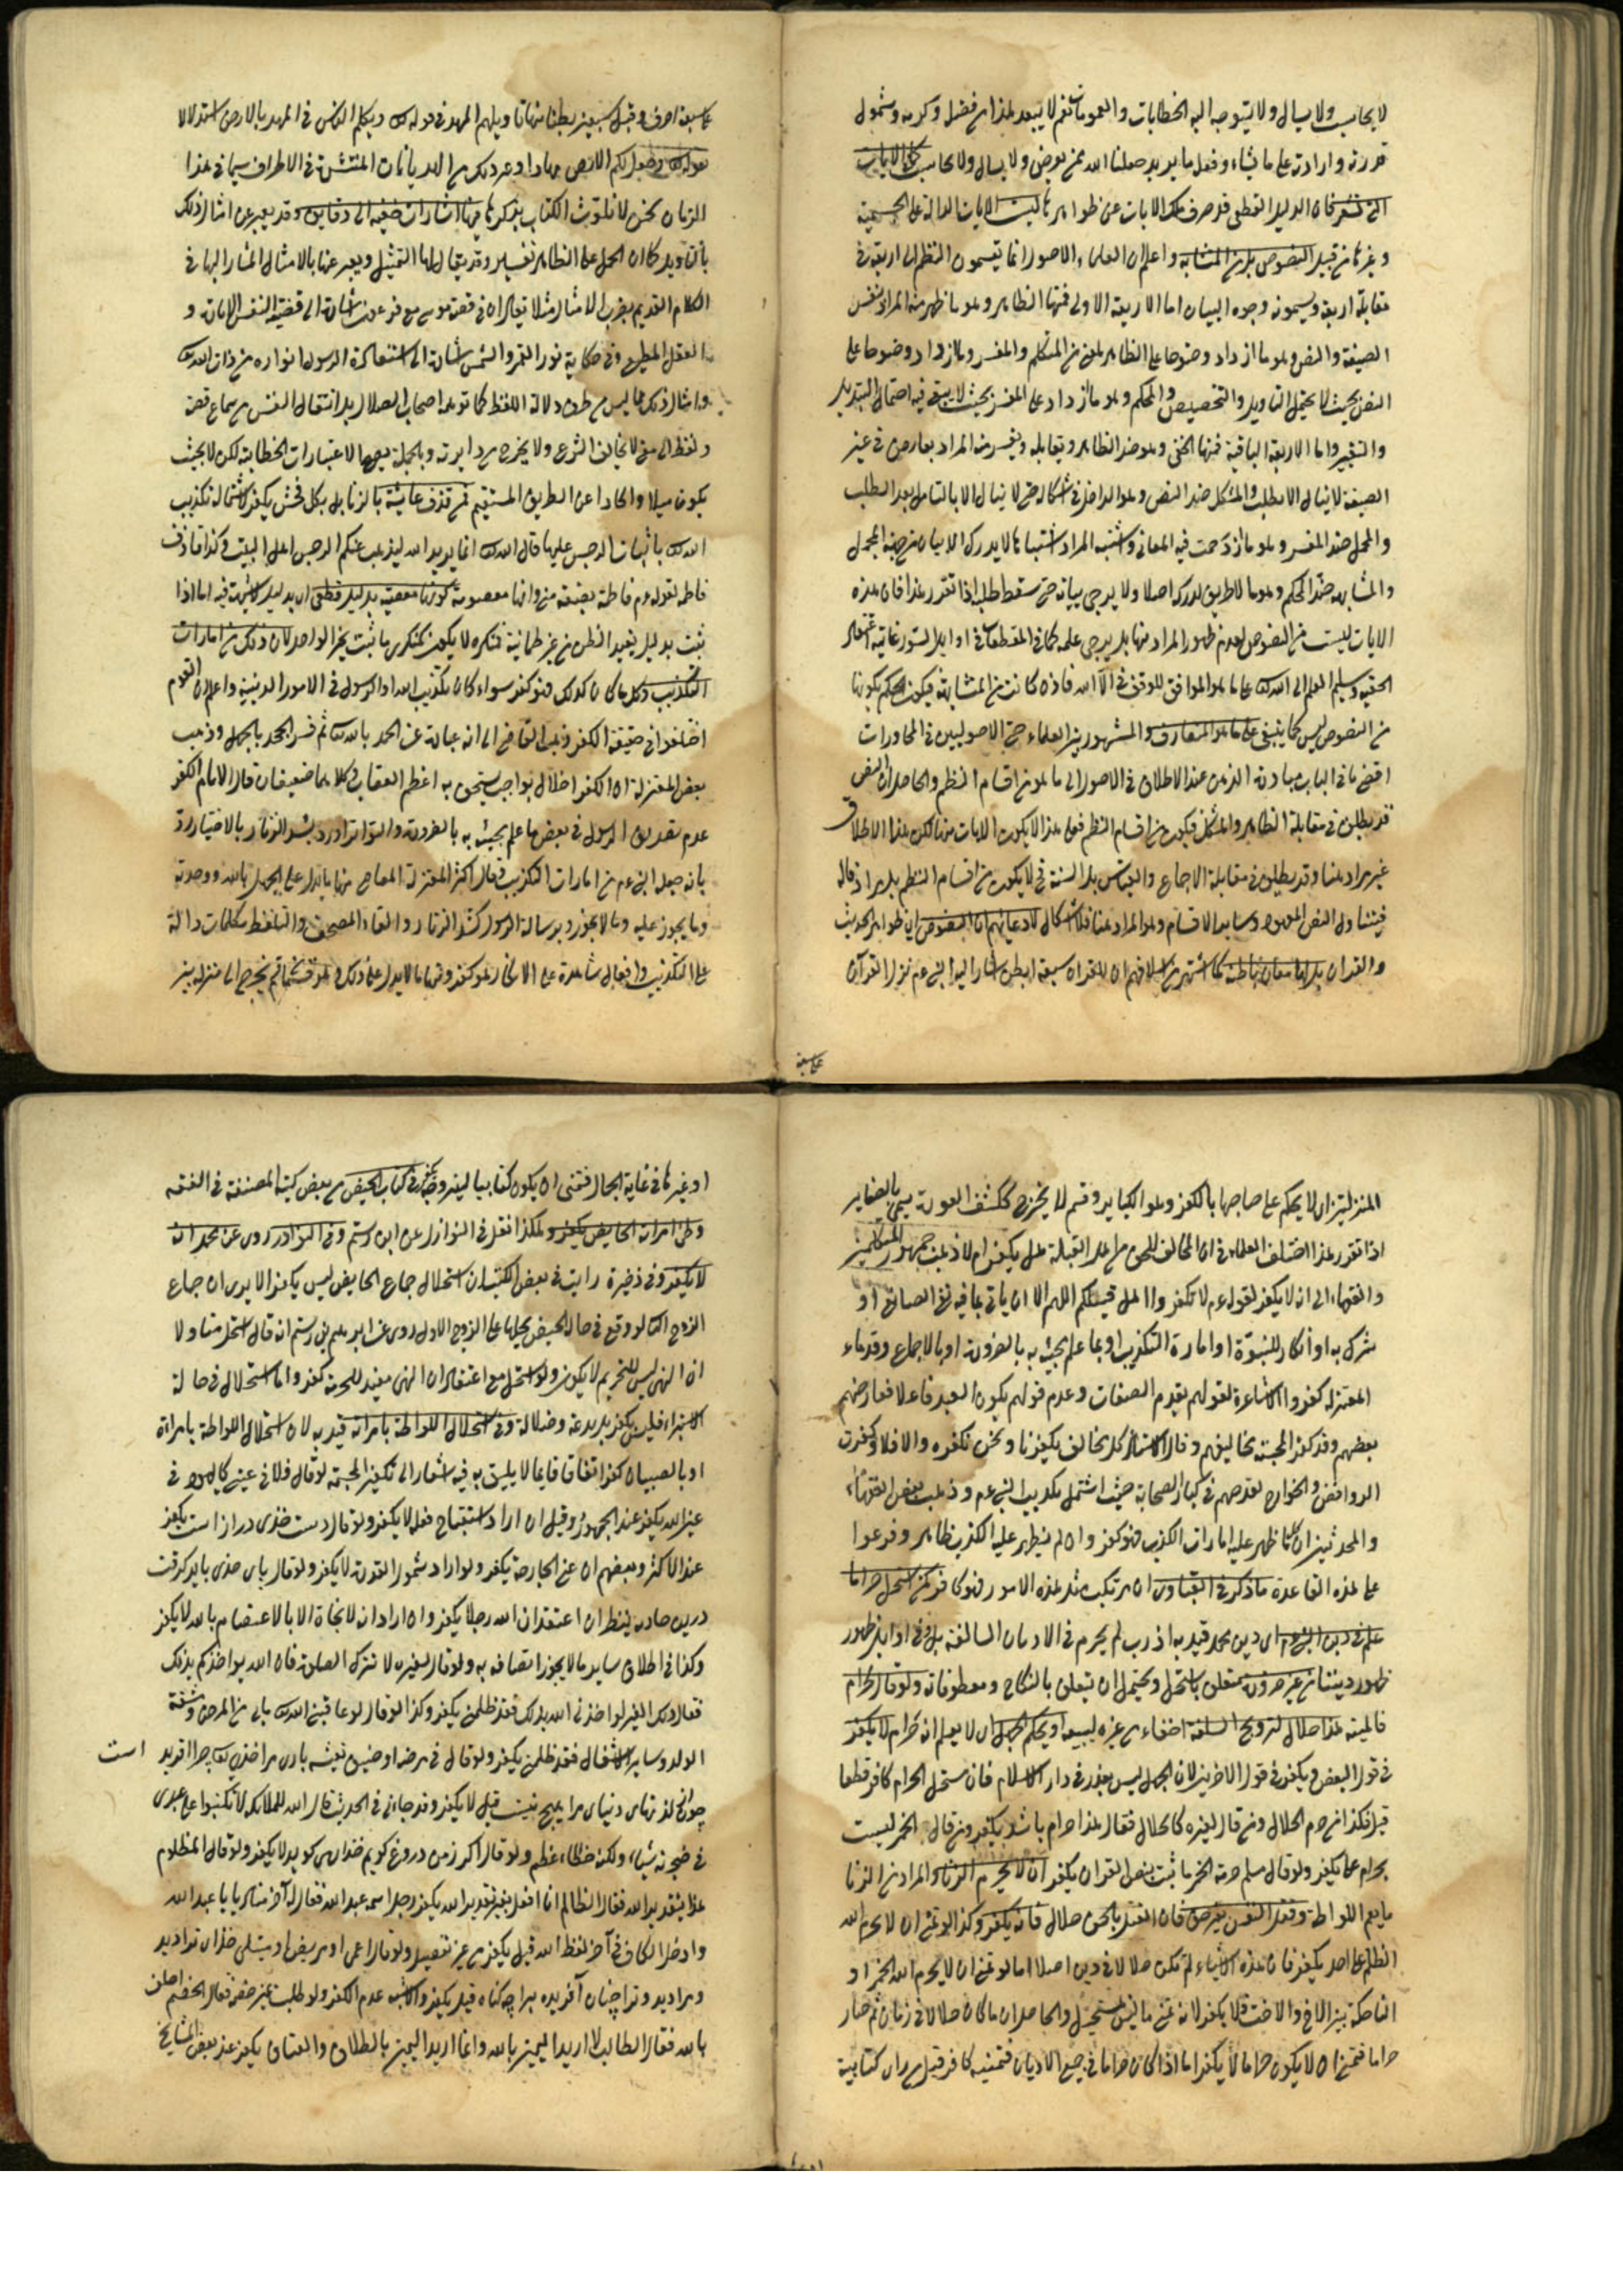 لا يحاسب ولا يسال ولا يتوجه اليه الخطابات والعمومات نعم لا يبعد هذا من فضل وكرمه وشمول
قدرته وارادته على ما يشاء وفعل ما يريد جعلنا الله ممن يعرض ولا يسال ولا يحاسب
فان الدليل القطعى قد صرف تلك الايات عن ظواهرها ليست الايات الدالة على الجسمية
وغيرها من قبيل النصوص بل من المتشابه واعلم ان العلماء الاصول انما يقسمون النظم الى اربعة فى
مقابلة اربعة ويسمونه وجوه البيان اما الاربعة الاولى فمنها الظاهر وهو ما ظهر منه المراد بنفس
الصيغة والنص وهو ما ازداد وضوحا على الظاهر لمعنى من المتكلم والمفسر وهو ما ازداد وضوحا على
النص بحيث لا يحتمل التاويل والتخصيص والمحكم وهو ما ازداد على المفسر بحيث لا يبقى فيه احتمال التبديل
والتغيير واما الاربعة الباقية فمنها الخفى وهو ضد الظاهر ويقابله ويفسر منه المراد بعارض فى غير
الصيغة لا ينال الا بطلب والمشكل ضد النص وهو الداخل فى اشكاله حتى لا ينال الا بالتامل بعد الطلب
والمجمل ضد المفسر وهو ما ازدحمت فيه المعانى واشتبه المراد اشتباها لا يدرك الا ببيان من جهة المجمل
والمتشابه ضد المحكم وهو ما لا طريق لدركه اصلا ولا يرجى بيانه حتى سقط طلبه اذا تقرر هذا فان هذه
الايات ليست من النصوص لعدم ظهور المراد منها بل يرجى علمه كما فى المقطعات فى اوايل السور غايته اعتقاد
الحقيه وتسليم العلم الى الله تعالى على ما هو الموافق للوقف فى الا الله فاذن كانت من المتشابه فيكون الحكم بكونها
من النصوص ليس كما ينبغى على ما هو المتعارف والمشهور بين العلماء حتى الاصوليين فى المحاورات
اقصى ما فى الباب مبادرة الذهن عند الاطلاق فى الاصول الى ما هو من اقسام النظم والحاصل ان النص
قد يطلق فى مقابلة الظاهر والمشكل فيكون من اقسام النظم فعلى هذا لا يكون الايات منها لكن هذا الاطلاق
غير مراد هنا وقد يطلق فى مقابلة الاجماع والقياس بل السنة لا يكون من اقسام النظم بل يرادفاله
فيتناول النص المعهود وساير الاقسام وهو المراد هنا فلا اشكال لادعائهم ان النصوص اى ظواهر الحديث
والقران بل لها معان باطنة كما اشتهر من اسلافهم ان للقران سبعة ابطن اشار اليه النبى عم نزل القرآن
على سبعة
على سبعة احرف وقيل سبعين بطنا منها تاويلهم المهد فى قوله تعالى ويكلم الناس فى المهد بالارض استدلالا
بقوله تعالى وجعل لكم الارض مهادا وغير ذلك من الهذيانات المنتشرة فى الاطراف سيما فى هذا
الزمان نحن لا نلوث الكتاب بذكرها فيها اشارات خفية الى دقايق وقد يعبر عن امثال ذلك
بالتاويل كما ان الحمل على الظاهر تفسير وقد يقال لها التمثيل ويعبر عنها بالامثال المشار اليها فى
الكلام القديم يضرب الامثال مثلا يقال ان فى قصة موسى مع فرعون اشارة الى قضية النفس الامارة و
العقل المطيع وفى حكاية نور القمر والشمس اشارة الى استفادة الرسول انواره من ذات الله تعالى
وامثال ذلك مما ليس من طرق دلالة اللفظ كما توهمه اصحاب الضلال بل انتقال النفس من سماع قصة
ولفظ الى معنى لا يخالف الشرع ولا يخرج من دايرته وبالجملة يعمها الاعتبارات الخطابية لكن لا بحيث
يكون ميلا والحادا عن الطريق المستقيم فمن قذف عايشة بالزنا بل بكل فحش يكفر لاشتماله تكذيب
الله تعالى باثبات الرجس عليها قال الله تعالى انما يريد الله ليذهب عنكم الرجس اهل البيت وكذا قاذف
فاطمة لقوله عم فاطمة بضعة منى وانها معصومة كونها معصية بدليل قطعى اى بدليل لا شبهة فيه اما اذا
ثبت بدليل يفيد الظن من غير طمانية فمنكره لا يكون كمنكر ما ثبت بخبر الواحد لان ذلك من امارات
التكذيب وكل ما كان كذلك فهو كفر سواء كان تكذيب الله او الرسول فى الامور الدينية واعلم ان القوم
اختلفوا فى حقيقة الكفر فذهب القاضى الى انه عبارة عن الجحد بالله تعالى ثم فسر الجحد بالجهل وذهب
بعض المعتزلة ان الكفر اخلال بواجب يستحق به اعظم العقاب وكلاهما ضعيفان قال الامام الكفر
عدم تصديق الرسول فى بعض ما علم مجيئه به بالضرورة والتواتر اورد بشد الزنار بالاختيار رد
بانه جعله النبى عم من امارات التكذيب فقال اكثر المعتزلة المعاصى منها ما يدل على الجهل بالله ووحدته
وما يجوز عليه وما لا يجوز وبرسالة الرسول كشد الزنار والقاء المصحف والتلفظ بكلمات دالة
على التكذيب وافعال شاهدة على الانكار فهو كفر ومنها ما لا يدل على ذلك وهو قسمان قسم يخرج الى منزلة بين
المنزلتين اى لا يحكم على صاحبها بالكفر وهو الكباير وقسم لا يخرج ككشف العورة يسمى بالصغاير
اذا تقرر هذا اختلف العلماء فى ان المخالف للحق من اهل القبلة هل يكفر ام لا ذهب جمهور المتكلمين
والفقهاء الى انه لا يكفر لقوله عم لا تكفروا اهل قبلتكم اللهم الا ان ياتى بما فيه نفى الصانع او
شرك به او انكار للنبوة او امارة التكذيب او بما علم مجيئه به بالضرورة او بالاجماع وقدماء
المعتزلة كفروا الاشاعرة لقولهم بقدم الصفات وعدم قولهم بكون العبد فاعلا فعارضهم
بعضهم وقد كفر المجسمة مخاليفهم وقال الاستاذ كل مخالف يكفرنا ونحن نكفره والا فلا وكفرت
الروافض والخوارج لقدحهم فى كبار الصحابة حيث اشتمل تكذيب النبى عم وذهب بعض الفقهاء
والمحدثين ان كلما ظهر عليه امارات الكذب فهو كفر وان لم يظهر عليه الكفر بظاهر وفرعوا
على هذه القاعدة ما ذكر فى الفتاوى ان مرتكب مثل هذه الامور فهو كافر كمن استحل حراما
علم فى دين النبى عم اى دين محمد قيد به اذ رب لم يحرم فى الاديان السالفة بل فى اوايل ظهور
ظهور ديننا من غير ضرورة متعلق باستحل ويحتمل ان يتعلق بالنكاح ومعطوفاته ولو قال لحرام
قاليته هذا حلال لترويج السلعة اخفاء من غيره ليبيعه او بحكم الجهل اى لا يعلم انه حرام لا يكفر
فى قول البعض ويكفر فى قول الاخرين لان الجهل ليس بعذر فى دار الاسلام فان مستحل الحرام كافر قطعا
قيل فكذا من حرم الحلال ومن قال لغيره كالحلال فقال هذا حرام باشد يكفر ومن قال الخمر ليست
بحرام علما يكفر ولو قال مسلم حرمة الخمر ما ثبت بنص القران يكفر ان لا يحرم الزناء المراد من الزنا
ما يعم اللواطة وقتل النفس بغير حق فان القتل بالحق حلال فانه يكفر وكذا لو تمنى ان لا يحرم الله
الظلم على احد يكفر فان هذه الاشياء لم تكن حلالا فى دين اصلا اما لو تمنى ان لا يحرم الله الخمر او
المناكحة بين الاخ والاخت فلا يكفر لانه تمنى ما ليس بمستحيل والحاصل ان ما كان حلالا فى زمان ثم صار
حراما فتمنى ان لا يكون حراما لا يكفر اما اذا كان حراما فى جميع الاديان فتمنيه كافر قيل من راى كتابية
او غيرها فى غاية الجمال فتمنى ان يكون كتابيا لينزوج يكفر فى كتاب الحيض من بعض كتب المصنفة فى الفقه
وطى امراته الحايض يكفر وهكذا نقل فى النوازل عن ابن رستم وفى النوادر روى عن محمد انه
لا يكفر وفى ذخيرة رايت فى بعض الكتب ان استحلال جماع الحايض ليس يكفر الا يرى ان جماع
الزوج الثانى لو وقع فى حال الحيض يحلها على الزوج الاول روى عن ابراهيم بن رستم انه قال استحل متاولا
ان النهى ليس للتحريم لا يكون ولو استحل مع اعتقاد ان النهى مفيد للحرمة كفر واما استحلال فى حالة
الاستبراء فليس يكفر بل بدعة وضلالة وفى استحلال اللواطة بامراته قيد به لان استحلال اللواطة بامراة
او بالصبيان كفر اتفاقا فايما لا يليق به فيه اشعار الى تكفير المجسمة لو قال فلان فى عينى كاليهود فى
عين الله يكفر عند الجمهور وقيل ان اراد استقباح فعله لا يكفر ولو قال دست خداى دراز است يكفر
عند الاكثر وبعضهم ان عنى الجارحة يكفر ولو اراد شمول القدرة لا يكفر ولو قال باى خداى بايد كرفت
درين حادثه ينظر ان اعتقد ان الله رجلا يكفر وان اراد انه لا نجاة الا بالاعتصام بالله لا يكفر
وكذا فى اطلاق ساير ما لا يجوز اتصافه به ولو قال لغيره لا تترك الصلوة فان الله يواخذكم بذلك
فقال ذلك الغير لو اخذنى الله بذلك فقد ظلمنى يكفر وكذا لو قال لو عاقبنى الله تعالى بما بى من المرض ومشقة
الولد وساير الاشغال فقد ظلمنى يكفر ولو قال فى مرضه او ضيق عيشه بارى مرا خداى تعالى چرا افريده است
چون از لذتهاى دنياى مرا هيچ نيست قيل لا يكفر وقد جاء فى الحديث قال الله للملائكة لا تكتبوا على عبدى
فى ضجرته شياء ولكنه خطاء عظيم ولو قال اكر من دروغ كويم خداى مى كويد لا يكفر ولو قال المظلوم
هذا بتقدير الله فقال الظالم انا افعل بغير تقدير الله يكفر رجل اسمه عبد الله فقال له آخر مناديا يا عبد الله
وادخل الكاف فى آخر لفظ الله قيل يكفر من غير تفصيل ولو قال اعمى او مريض او مبتلى خداى ترا ديد
ومرا ديد وترا چنان آفريده مرا چه كناه قيل يكفر والاشبه عدم الكفر ولو طلب يمين خصم فقال الخصم احلف
بالله فقال الطالب لا اريد اليمين بالله وانما اريد اليمين بالطلاق والعتاق يكفر عند بعض المشايخ